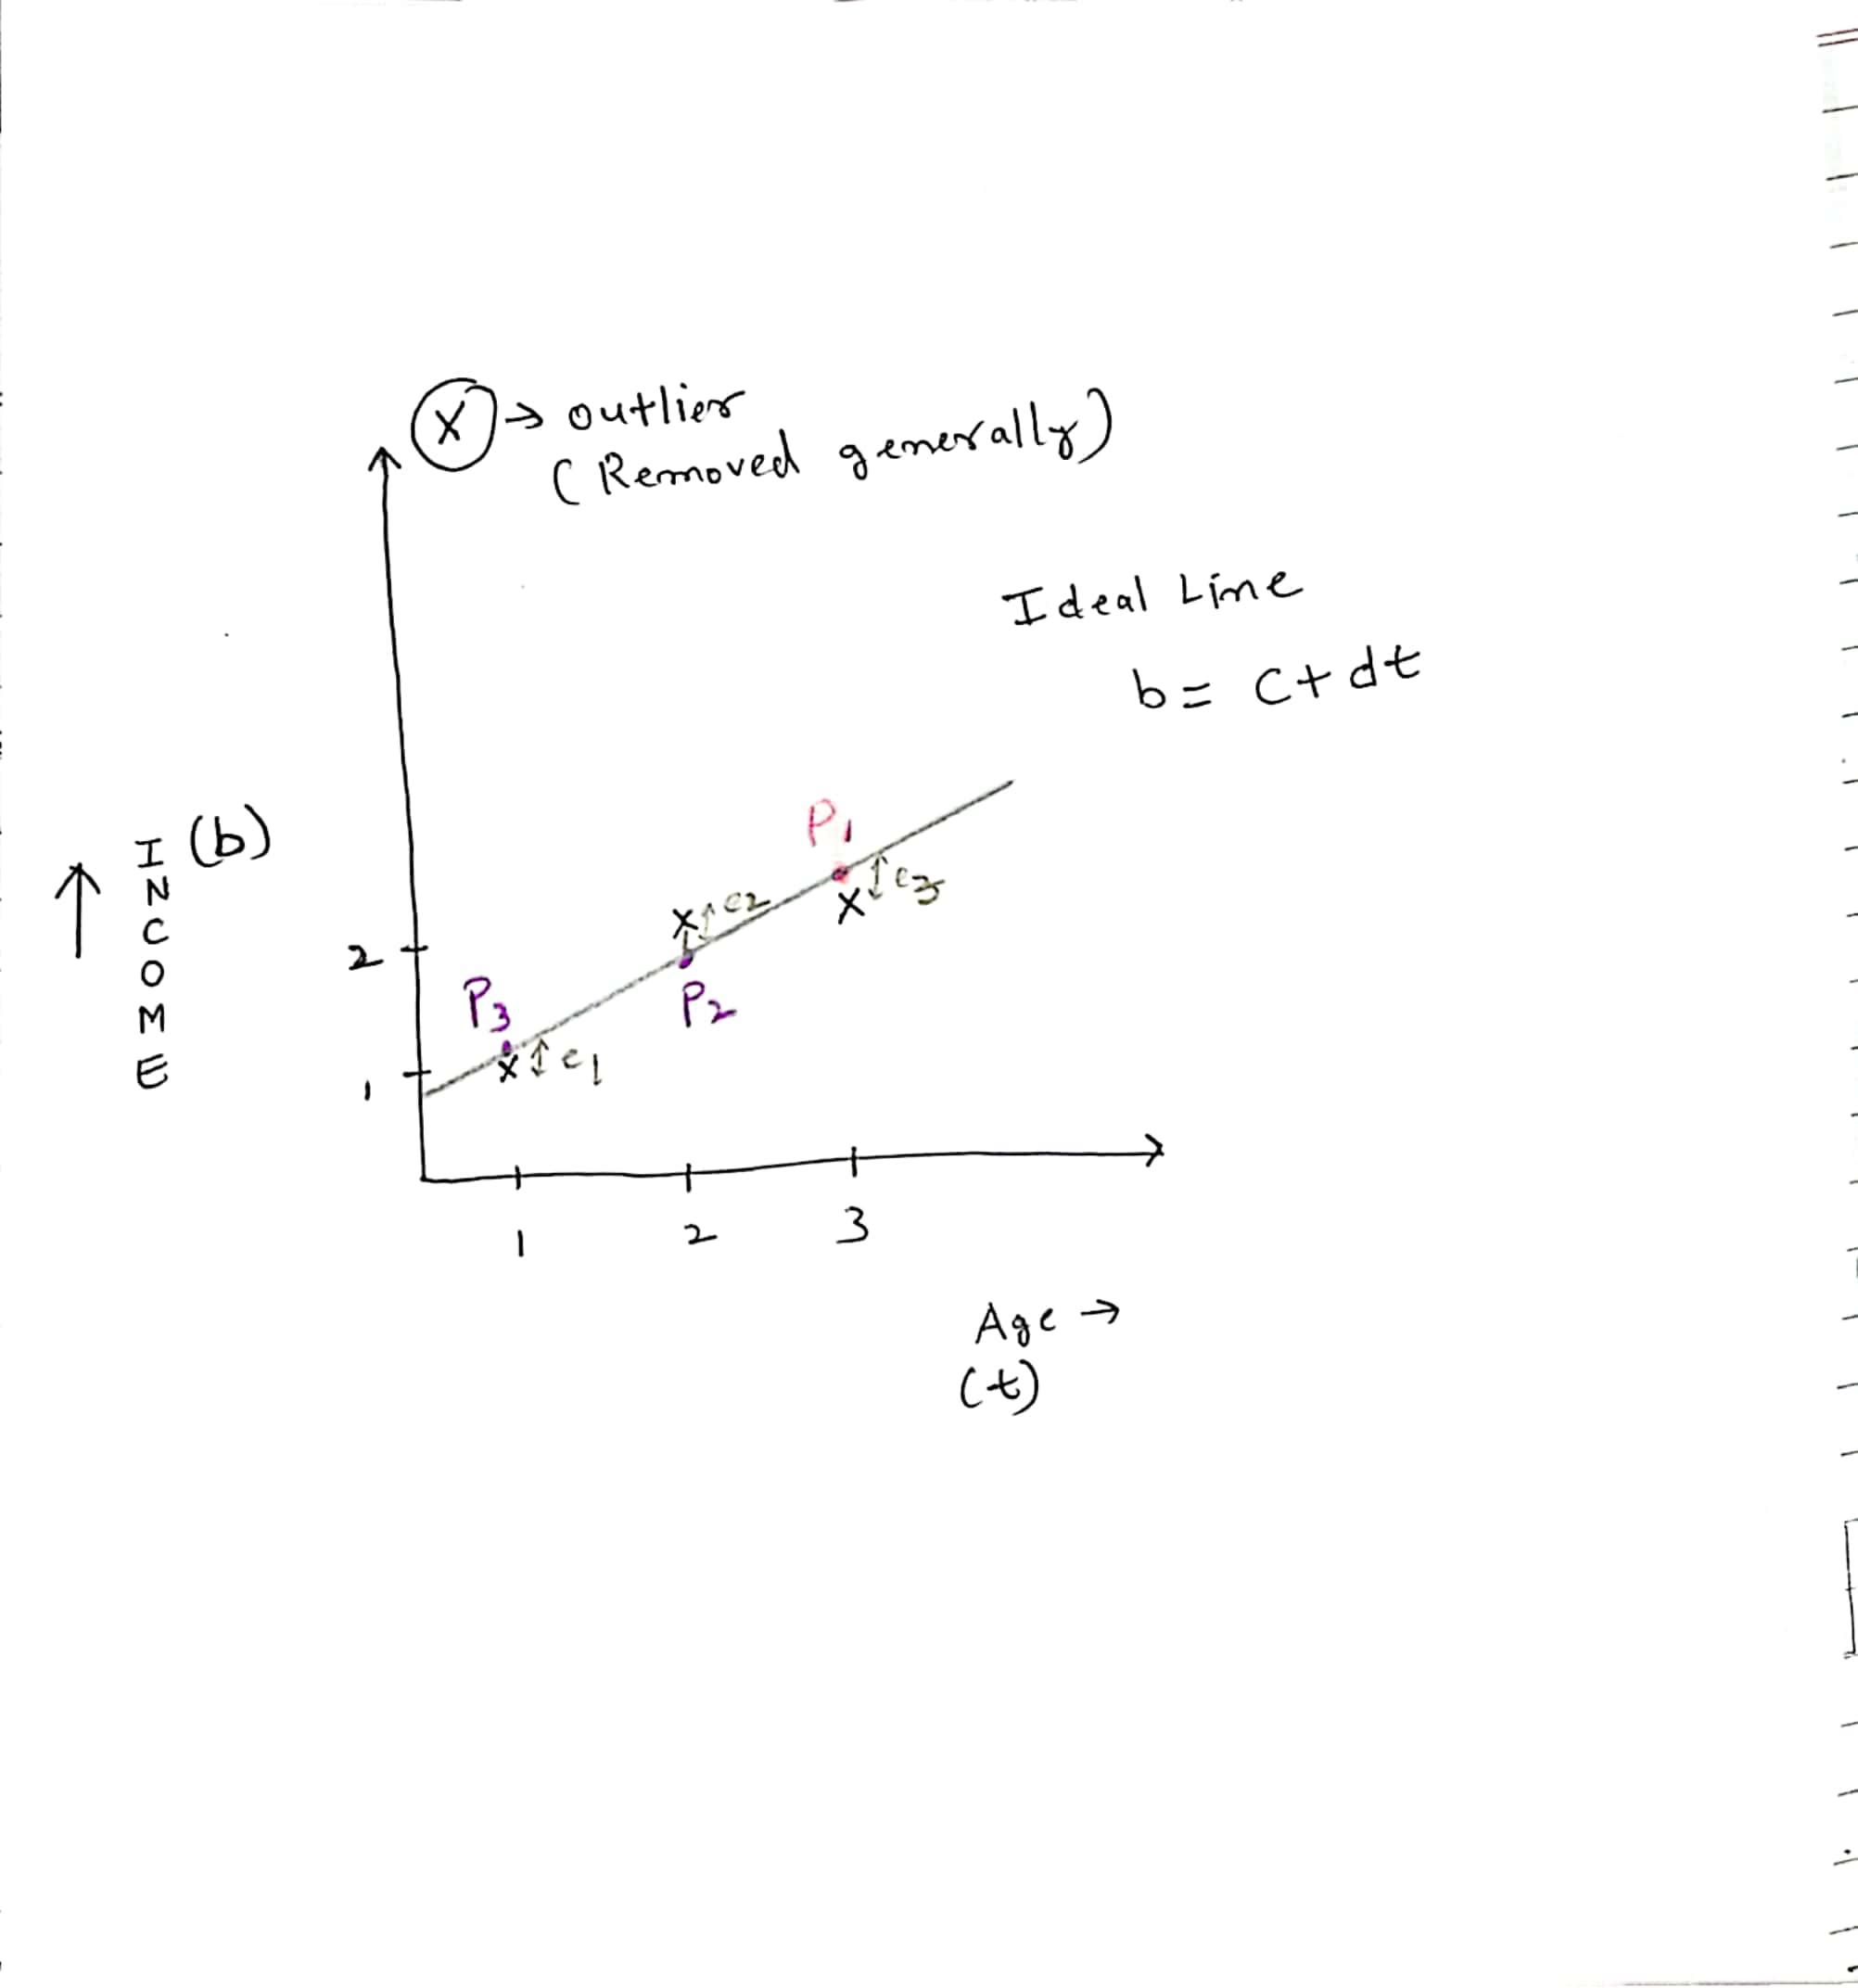 X → outlier
(Removed generally)
Ideal Line
b = c + dt
INCOME (b)
P1
e3
e2
2
P3
P2
e1
1
1 2 3
Age →
(t)